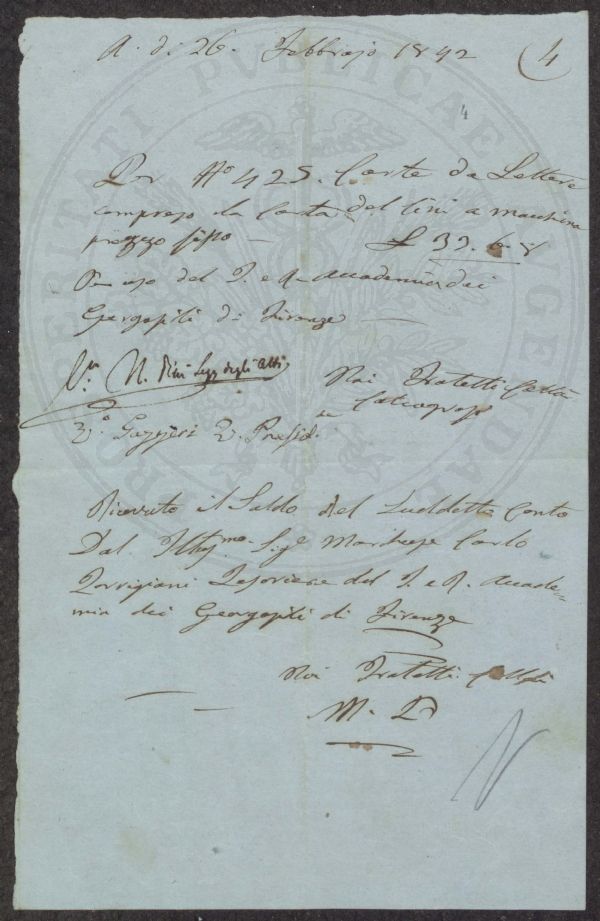 A. di 26. Febbrajo 1842
4
4
Per No 425. Carte da Lettere
compreso la Carta del tini a macchina
prezzo fisso — £ 39. 6. 8
Per uso del I. e R. Accademia dei
Georgofili di Firenze —
Vo. N. Rini Segr. degli Atti
Noi Fratelli
Calcografi
Vo. Gazzeri V. Presid.
Ricevuto il Saldo del Suddetto Conto
Dal Illmo. Sige. Marchese Carlo
Torrigiani Tesoriere del I. e R. Accade=
mia dei Georgofili di Firenze
Noi Fratelli
M. P.
PROSPERITATI PUBLICAE AUGENDAE